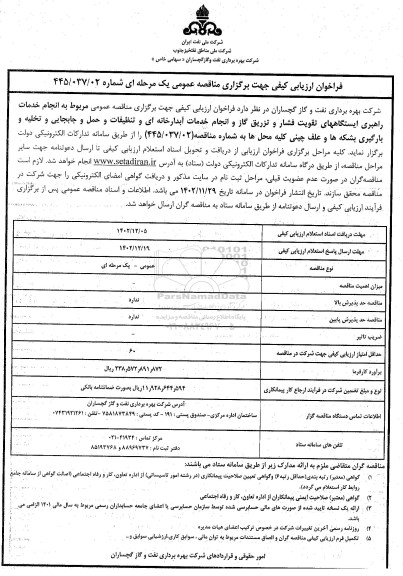 شرکت ملی نفت ایران
شرکت ملی مناطق نفتخیز جنوب
شرکت بهره برداری نفت و گاز گچساران « سهامی خاص »
فراخوان ارزیابی کیفی جهت برگزاری مناقصه عمومی یک مرحله ای شماره ۴۴۵/۰۳۷/۰۲
شرکت بهره برداری نفت و گاز گچساران در نظر دارد فراخوان ارزیابی کیفی جهت برگزاری مناقصه عمومی مربوط به انجام خدمات
راهبری ایستگاههای تقویت فشار و تزریق گاز و انجام خدمات آبدارخانه ای و تنظیفات و حمل و جابجایی و تخلیه و
بارگیری بشکه ها و علف چینی کلیه محل ها به شماره مناقصه(۴۴۵/۰۳۷/۰۲) را از طریق سامانه تدارکات الکترونیکی دولت
برگزار نماید. کلیه مراحل برگزاری فراخوان ارزیابی از دریافت و تحویل اسناد استعلام ارزیابی کیفی تا ارسال دعوتنامه جهت سایر
مراحل مناقصه، از طریق درگاه سامانه تدارکات الکترونیکی دولت (ستاد) به آدرس www.setadiran.ir انجام خواهد شد. لازم است
مناقصه‌گران در صورت عدم عضویت قبلی، مراحل ثبت نام در سایت مذکور و دریافت گواهی امضای الکترونیکی را جهت شرکت در
مناقصه محقق سازند. تاریخ انتشار فراخوان در سامانه تاریخ ۱۴۰۲/۱۱/۲۹ می باشد. اطلاعات و اسناد مناقصه عمومی پس از برگزاری
فرآیند ارزیابی کیفی و ارسال دعوتنامه از طریق سامانه ستاد به مناقصه گران ارسال خواهد شد.
مهلت دریافت اسناد استعلام ارزیابی کیفی ۱۴۰۲/۱۲/۰۵
مهلت ارسال پاسخ استعلام ارزیابی کیفی ۱۴۰۲/۱۲/۱۹
نوع مناقصه عمومی - یک مرحله ای
میزان اهمیت مناقصه -
مناقصه حد پذیرش بالا ندارد
مناقصه حد پذیرش پایین ندارد
ضریب تاثیر -
حداقل امتیاز ارزیابی کیفی جهت شرکت در مناقصه ۶۰
برآورد کارفرما ۲۳۸,۵۷۲,۸۹۱,۸۷۲ ریال
نوع و مبلغ تضمین شرکت در فرآیند ارجاع کار پیمانکاری ۱۱,۹۲۸,۶۴۴,۵۹۴ ریال بصورت ضمانتنامه بانکی
اطلاعات تماس دستگاه مناقصه گزار
آدرس شرکت بهره برداری نفت و گاز گچساران
ساختمان اداره مرکزی- صندوق پستی : ۱۹۱ - کد پستی : ۷۵۸۱۸۷۳۸۴۹ - تلفن : ۰۷۴۳۱۹۲۱۲۶۱
تلفن های سامانه ستاد
مرکز تماس : ۴۱۹۳۴-۰۲۱
دفتر ثبت نام : ۸۸۹۶۹۷۳۷ و ۸۵۱۹۳۷۶۸
مناقصه گران متقاضی ملزم به ارائه مدارک زیر از طریق سامانه ستاد می باشند:
۱) گواهی (معتبر) رتبه بندی(حداقل رتبه۶) وگواهی تعیین صلاحیت پیمانکاری (در رشته امور تاسیساتی) از اداره تعاون، کار و رفاه اجتماعی (اصالت گواهی از سامانه جامع
روابط کار استعلام می گردد).
۲) گواهی (معتبر) صلاحیت ایمنی پیمانکاران از اداره تعاون، کار و رفاه اجتماعی
۳) ارائه یک نسخه تایید شده از صورت های مالی حسابرسی شده توسط سازمان حسابرسی یا اعضای جامعه حسابداران رسمی مربوط به سال مالی ۱۴۰۱ الزامی می
باشد.
۴) روزنامه رسمی آخرین تغییرات شرکت در خصوص ترکیب اعضای هیات مدیره
۵) تکمیل فرم ارزیابی کیفی مناقصه گران و الصاق مستندات مربوط به توان مالی ، سوابق کاری،ارزشیابی سوابق و..
امور حقوقی و قراردادهای شرکت بهره برداری نفت و گاز گچساران